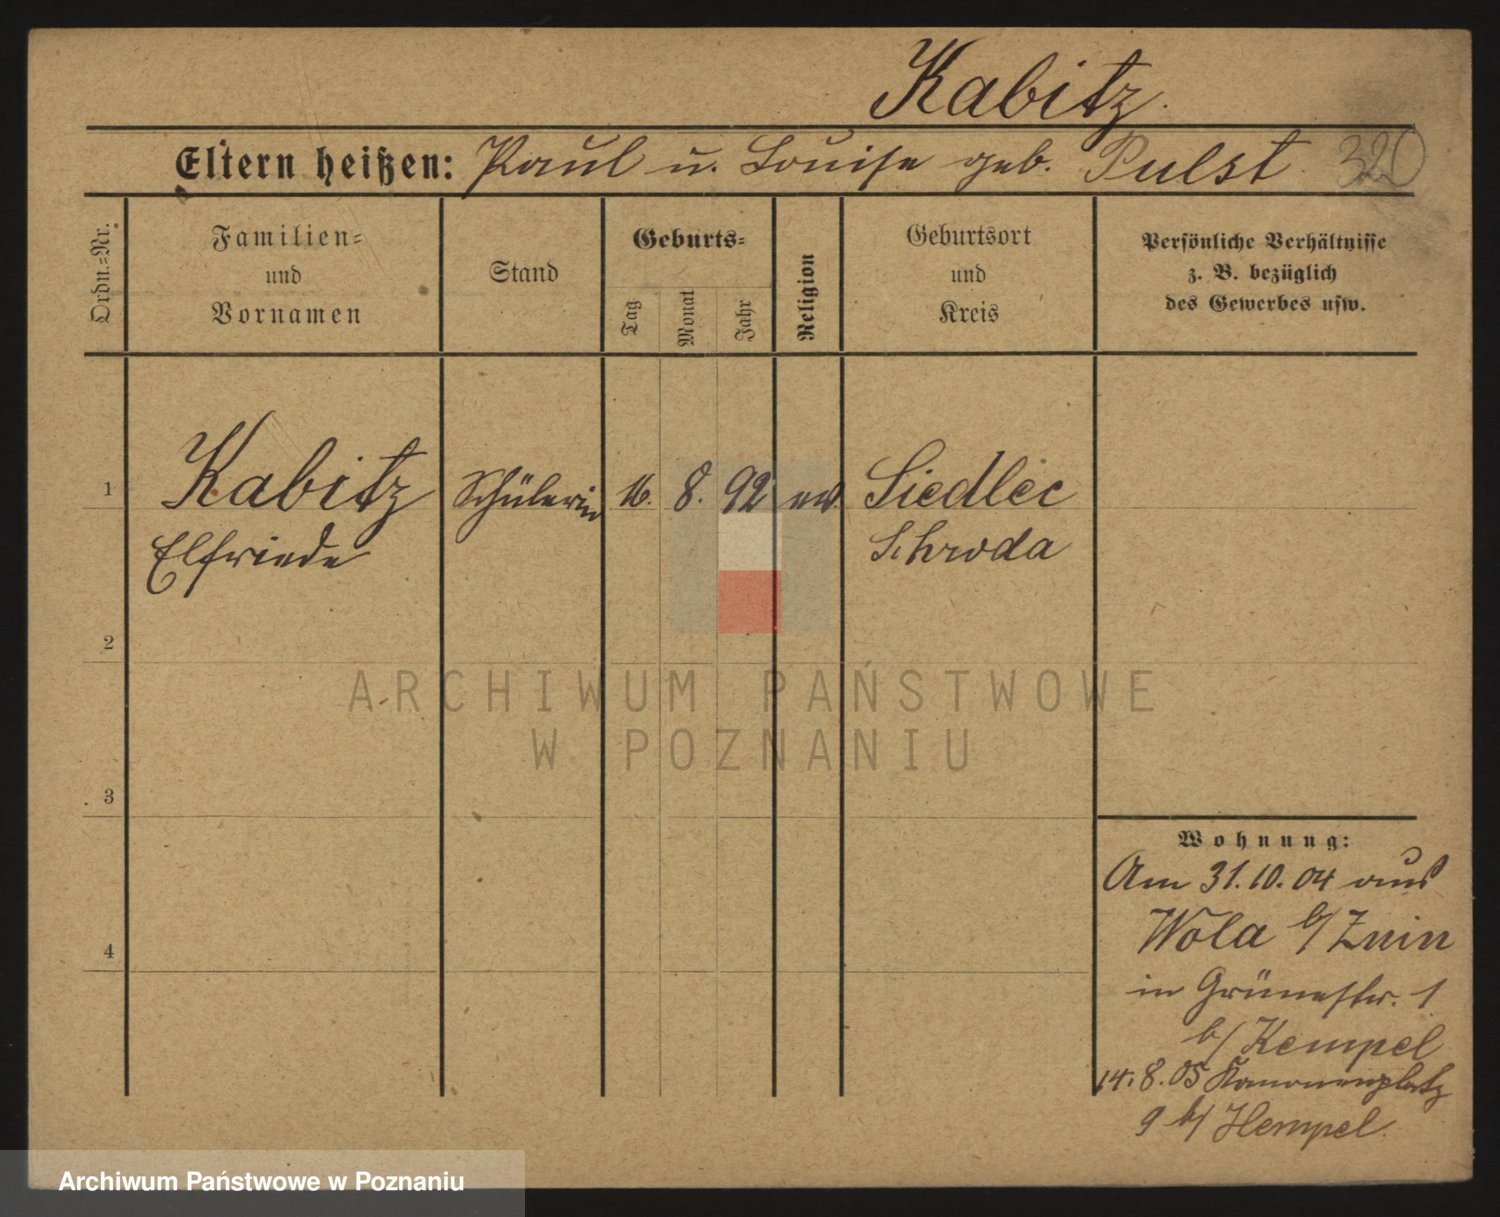 Kabitz.
Eltern heißen: Paul u. Louise geb. Pulst 320
Ordn.-Nr.
Familien-
und
Vornamen
Stand
Geburts-
Tag
Monat
Jahr
Religion
Geburtsort
und
Kreis
Persönliche Verhältnisse
z. B. bezüglich
des Gewerbes usw.
1 Kabitz Schülerin 16. 8. 92 ev. Siedlec
Elfriede Schroda
2
ARCHIWUM PAŃSTWOWE
W POZNANIU
3
4
Wohnung:
Am 31.10.04 aus
Wola b/ Znin
in Grünestr. 1
b/ Kempel
14.8.05 Kanonenplatz
9 b/ Hempel.
Archiwum Państwowe w Poznaniu